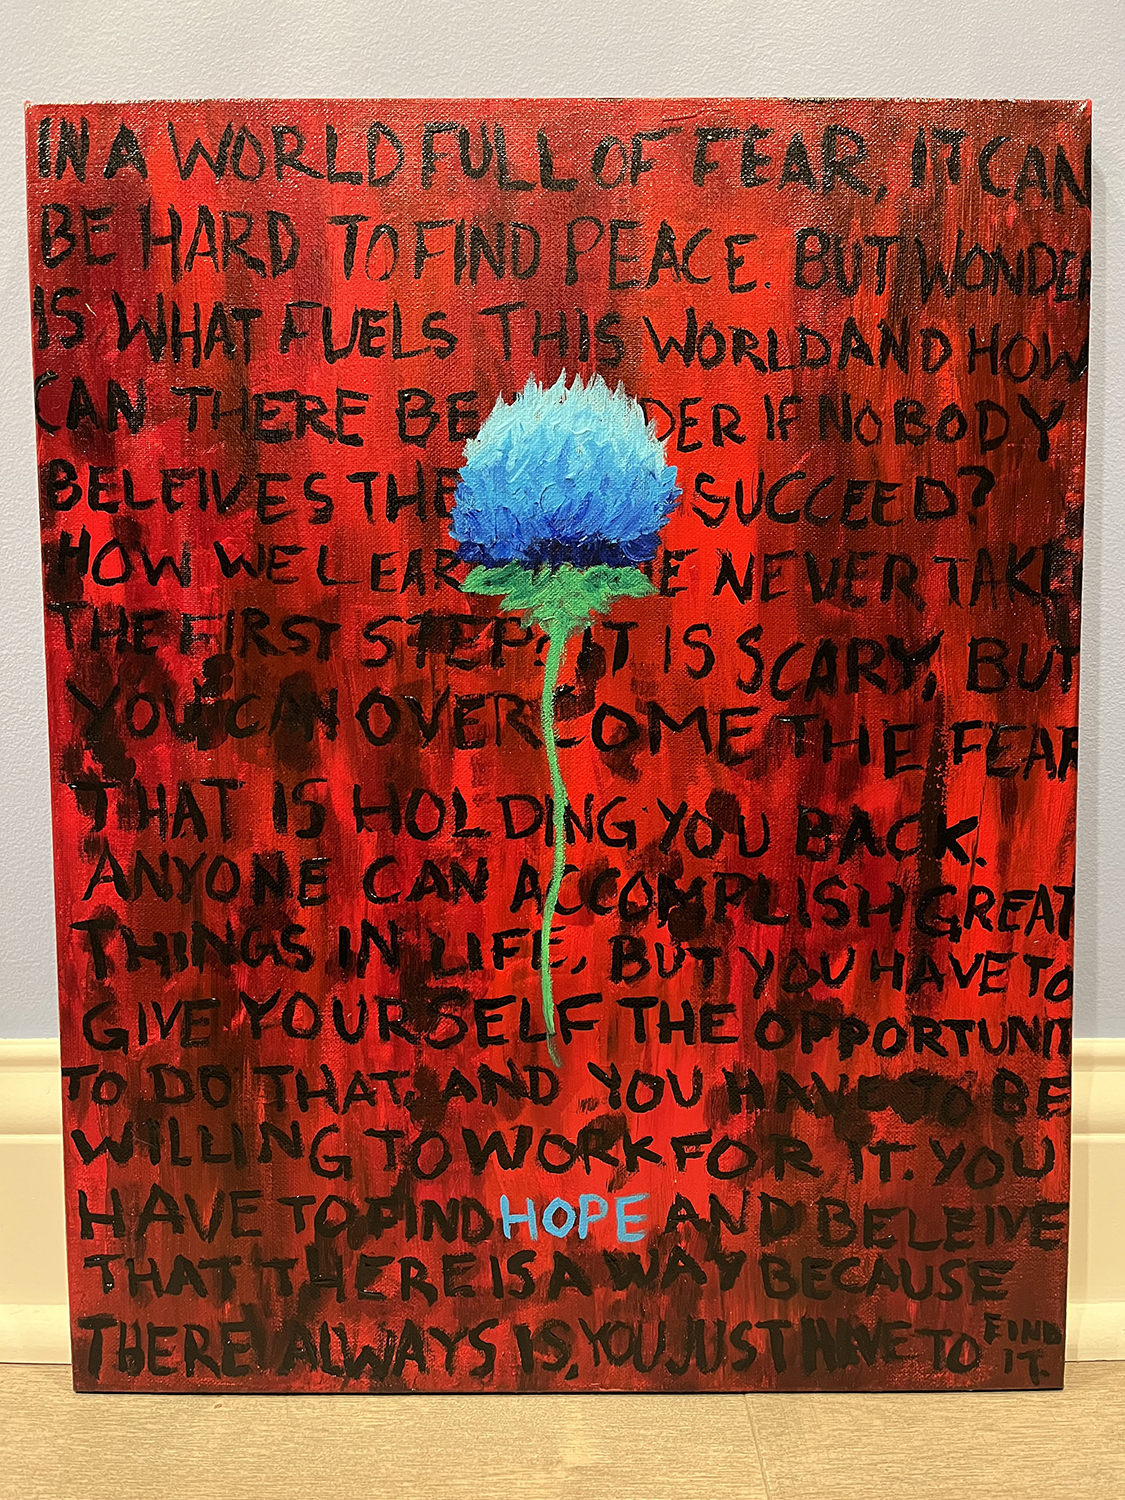 IN A WORLD FULL OF FEAR, IT CAN
BE HARD TO FIND PEACE. BUT WONDER
IS WHAT FUELS THIS WORLD AND HOW
CAN THERE BE DER IF NOBODY
BELEIVES THE SUCCEED?
HOW WE LEAR E NEVER TAKE
THE FIRST STEP? IT IS SCARY, BUT
YOU CAN OVERCOME THE FEAR
THAT IS HOLDING YOU BACK.
ANYONE CAN ACCOMPLISH GREAT
THINGS IN LIFE, BUT YOU HAVE TO
GIVE YOURSELF THE OPPORTUNIT
TO DO THAT, AND YOU HAVE TO BE
WILLING TO WORK FOR IT. YOU
HAVE TO FIND HOPE AND BELEIVE
THAT THERE IS A WAY BECAUSE
THERE ALWAYS IS, YOU JUST HAVE TO FIND IT.